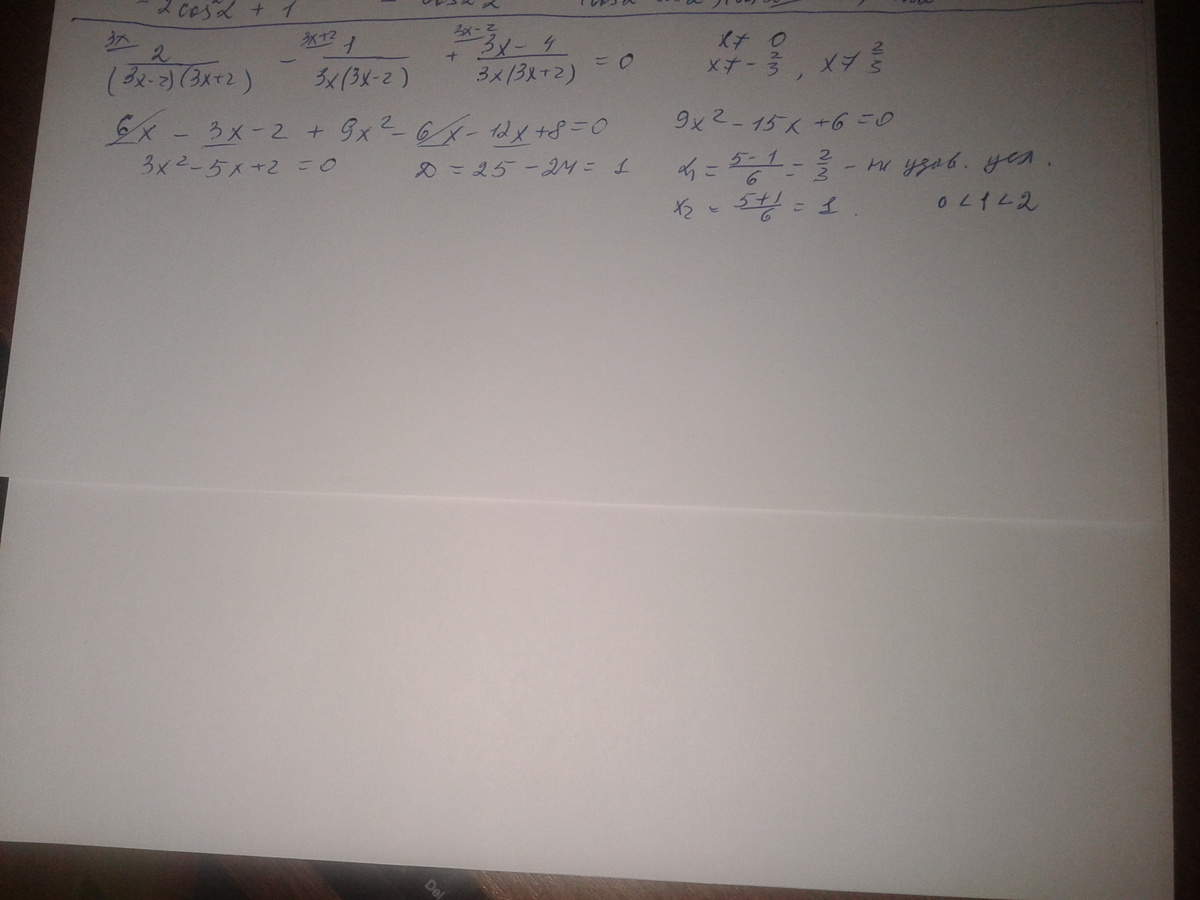 2cos²α + 1
3x 3x+2 3x-2
2/((3x-2)(3x+2)) - 1/(3x(3x-2)) + (3x-4)/(3x(3x+2)) = 0 x≠ 0
x≠ -2/3, x≠ 2/3
6x - 3x - 2 + 9x² - 6x - 12x + 8 = 0 9x² - 15x + 6 = 0
3x² - 5x + 2 = 0 D = 25 - 24 = 1 x₁ = (5-1)/6 = 2/3 - не удов. усл.
x₂ = (5+1)/6 = 1. 0 < 1 < 2
Del